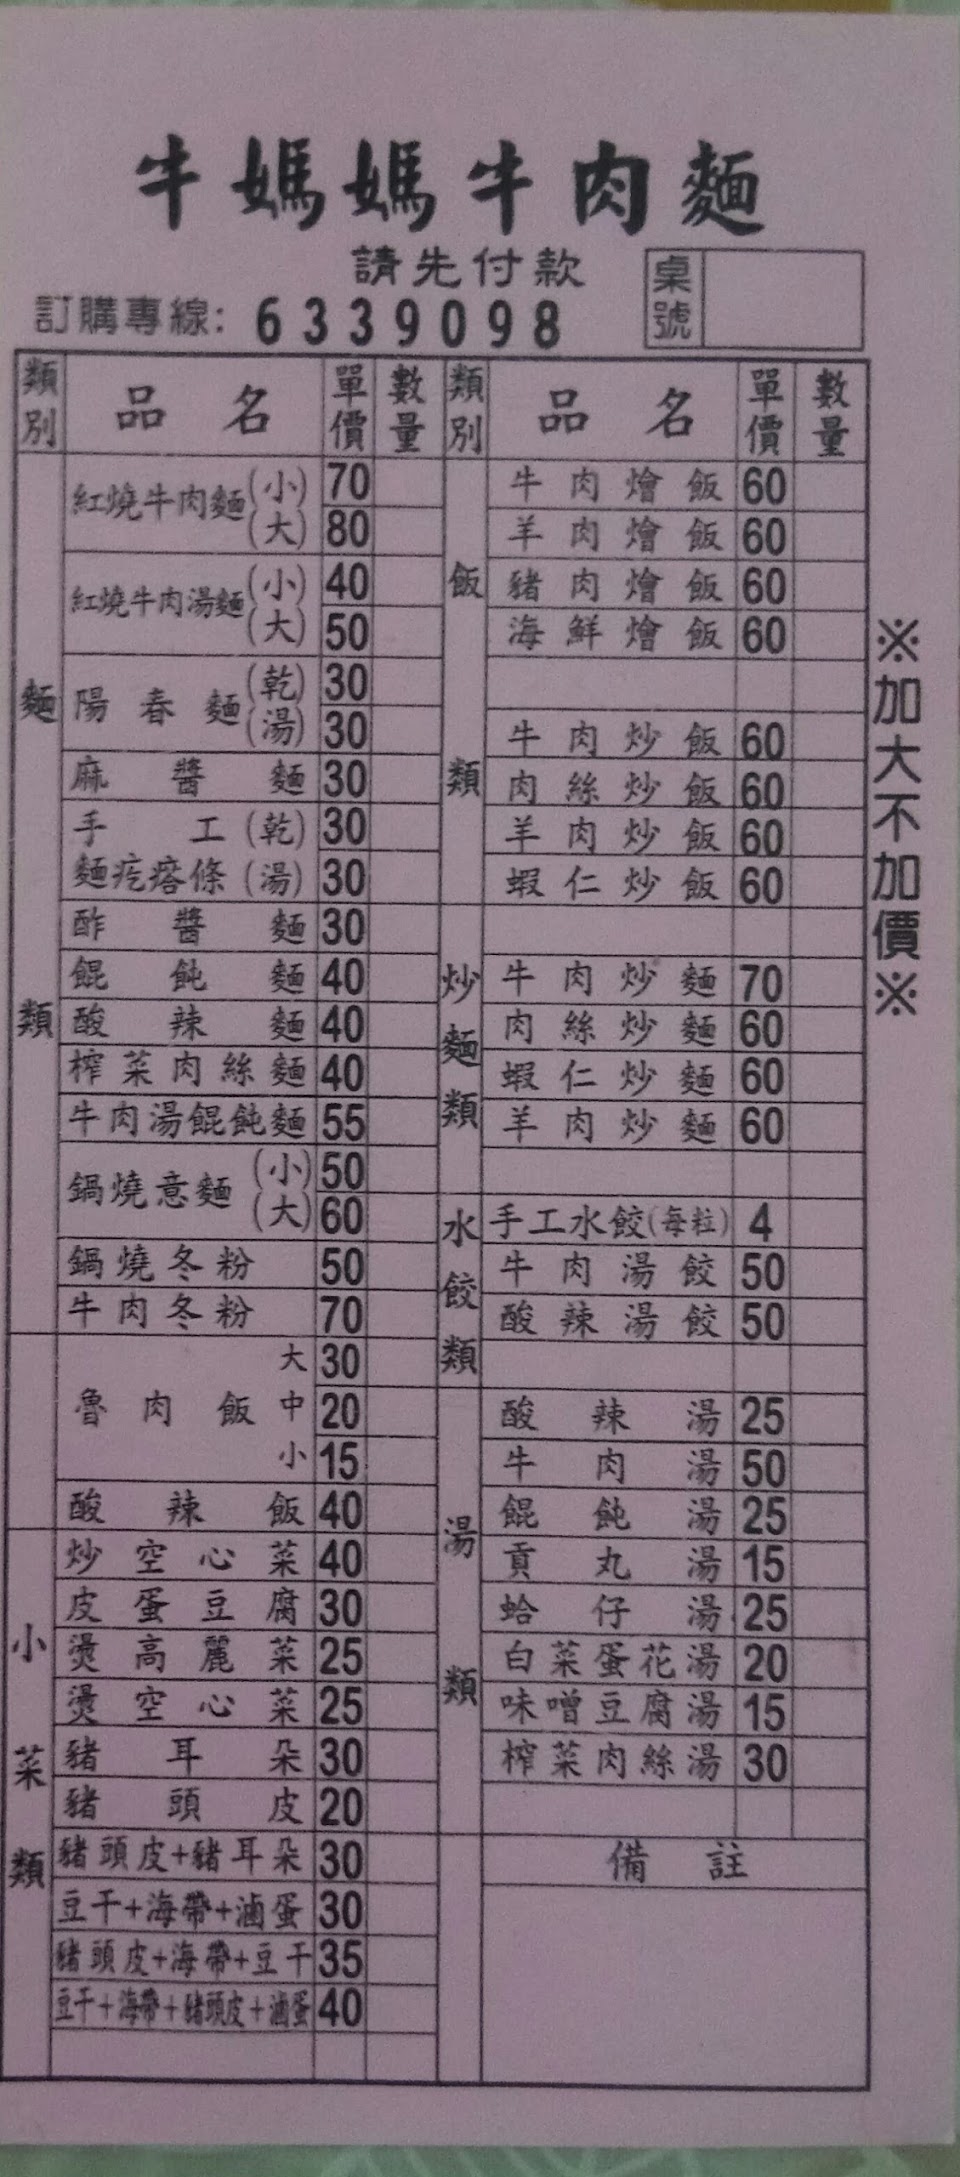 牛媽媽牛肉麵
請先付款
訂購專線: 6339098
桌號
類別 品名 單價 數量
麵類
紅燒牛肉麵(小) 70
(大) 80
紅燒牛肉湯麵(小) 40
(大) 50
陽春麵(乾) 30
(湯) 30
麻醬麵 30
手工(乾) 30
麵疙瘩條(湯) 30
酢醬麵 30
餛飩麵 40
酸辣麵 40
榨菜肉絲麵 40
牛肉湯餛飩麵 55
鍋燒意麵(小) 50
(大) 60
鍋燒冬粉 50
牛肉冬粉 70
魯肉飯 大 30
中 20
小 15
酸辣飯 40
小菜類
炒空心菜 40
皮蛋豆腐 30
燙高麗菜 25
燙空心菜 25
豬耳朵 30
豬頭皮 20
豬頭皮+豬耳朵 30
豆干+海帶+滷蛋 30
豬頭皮+海帶+豆干 35
豆干+海帶+豬頭皮+滷蛋 40
類別 品名 單價 數量
飯類
牛肉燴飯 60
羊肉燴飯 60
豬肉燴飯 60
海鮮燴飯 60
牛肉炒飯 60
肉絲炒飯 60
羊肉炒飯 60
蝦仁炒飯 60
炒麵類
牛肉炒麵 70
肉絲炒麵 60
蝦仁炒麵 60
羊肉炒麵 60
水餃類
手工水餃(每粒) 4
牛肉湯餃 50
酸辣湯餃 50
湯類
酸辣湯 25
牛肉湯 50
餛飩湯 25
貢丸湯 15
蛤仔湯 25
白菜蛋花湯 20
味噌豆腐湯 15
榨菜肉絲湯 30
備註
※加大不加價※